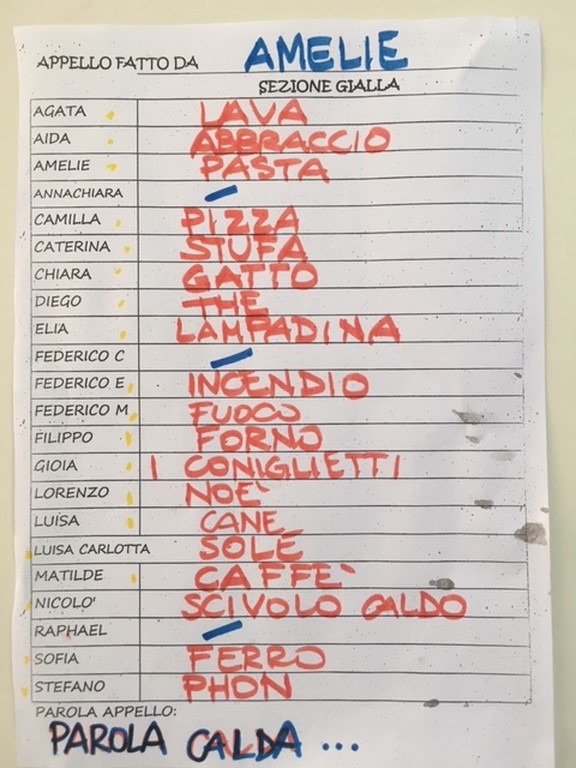 APPELLO FATTO DA AMELIE
SEZIONE GIALLA
AGATA LAVA
AIDA ABBRACCIO
AMELIE PASTA
ANNACHIARA
CAMILLA PIZZA
CATERINA STUFA
CHIARA GATTO
DIEGO THE
ELIA LAMPADINA
FEDERICO C
FEDERICO E INCENDIO
FEDERICO M FUOCO
FILIPPO FORNO
GIOIA I CONIGLIETTI
LORENZO NOE`
LUISA CANE
LUISA CARLOTTA SOLE
MATILDE CAFFE`
NICOLO' SCIVOLO CALDO
RAPHAEL
SOFIA FERRO
STEFANO PHON
PAROLA APPELLO:
PAROLA CALDA ...